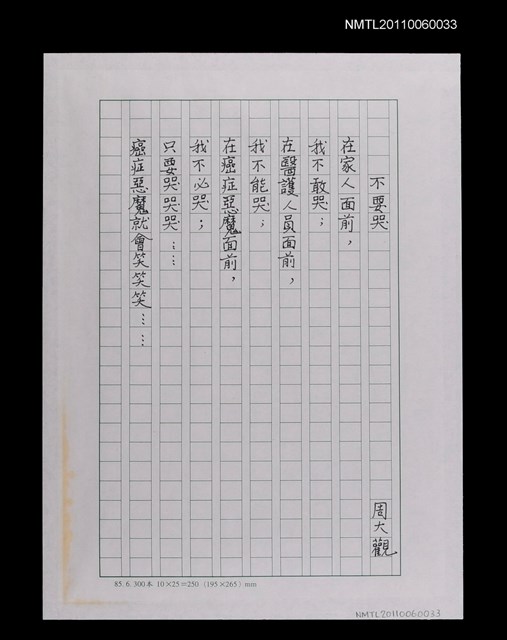 NMTL20110060033
不要哭
周大觀
在家人面前，
我不敢哭；
在醫護人員面前，
我不能哭；
在癌症惡魔面前，
我不必哭；
只要哭哭哭……
癌症惡魔就會笑笑笑……
85.6.300本 10×25=250 (195×265) mm
NMTL20110060033